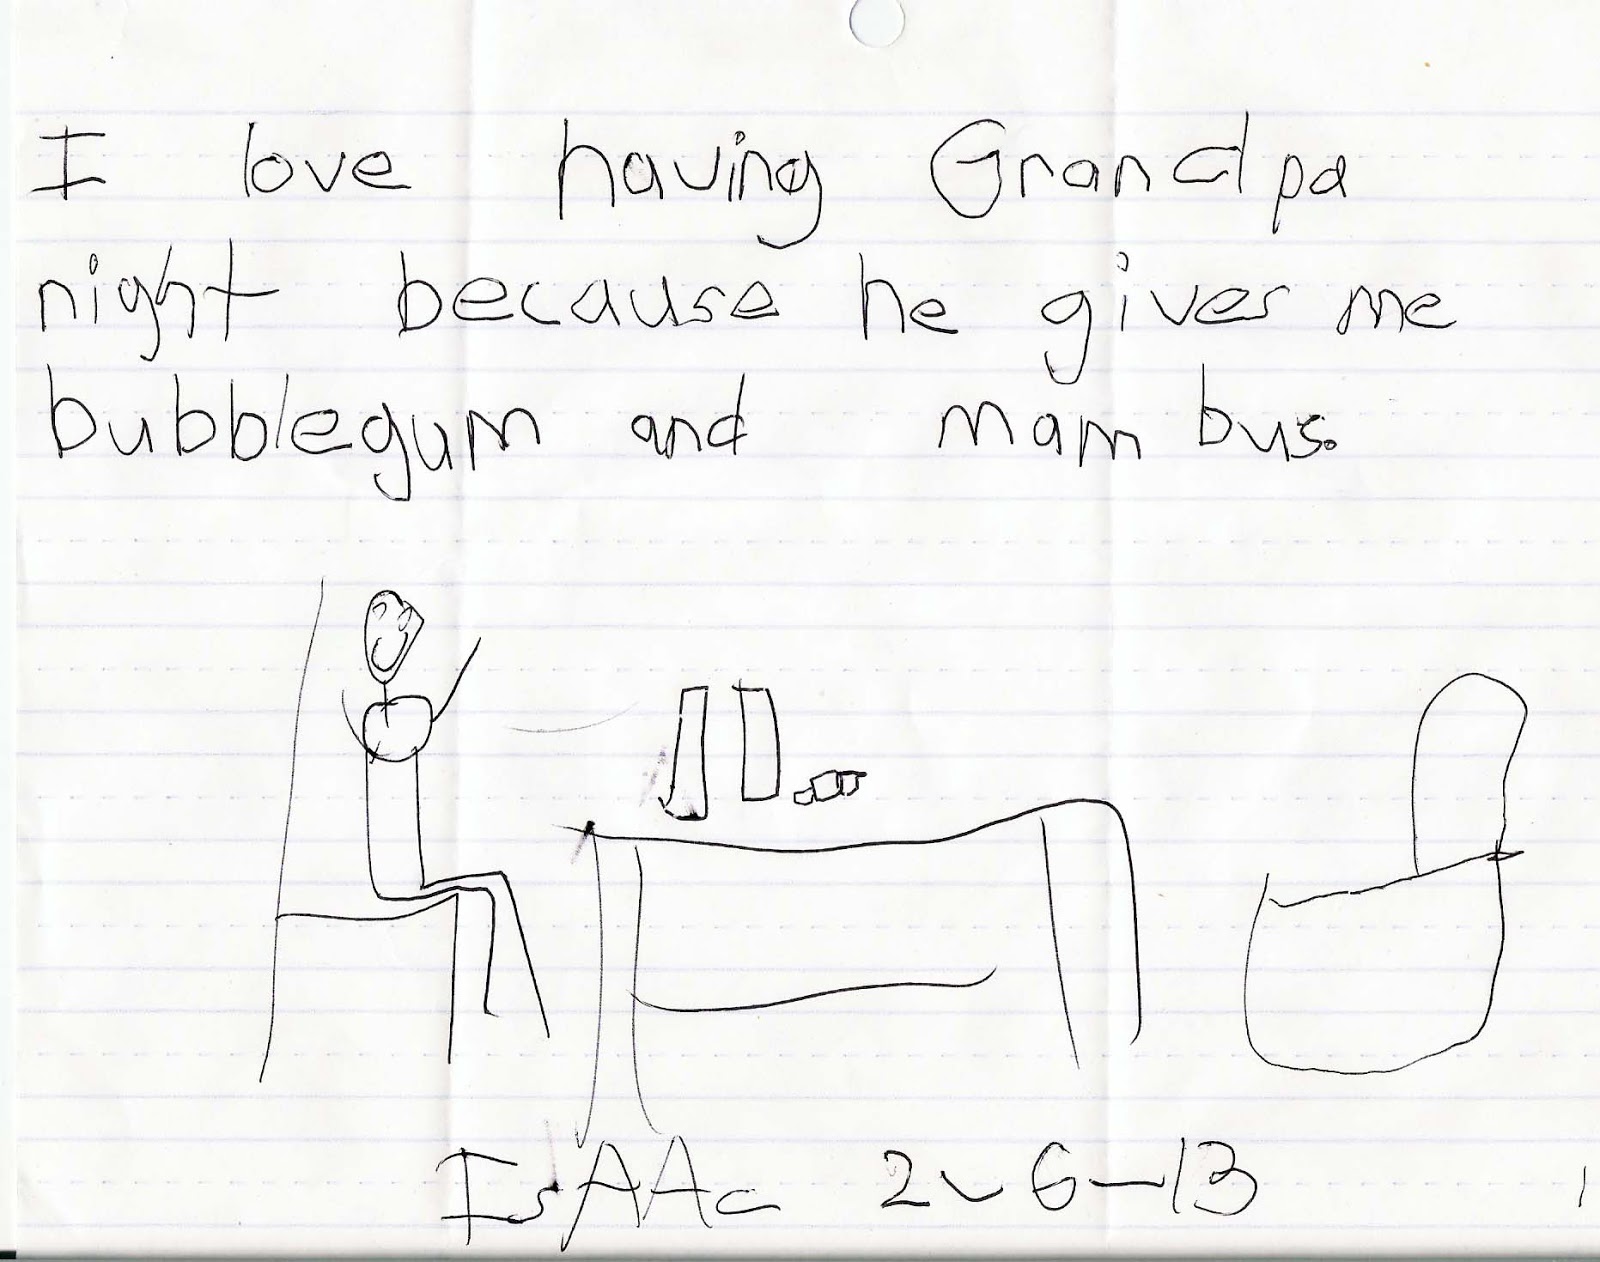 I love having Grandpa
night because he gives me
bubblegum and mam bus.
IsAAc 2-6-13